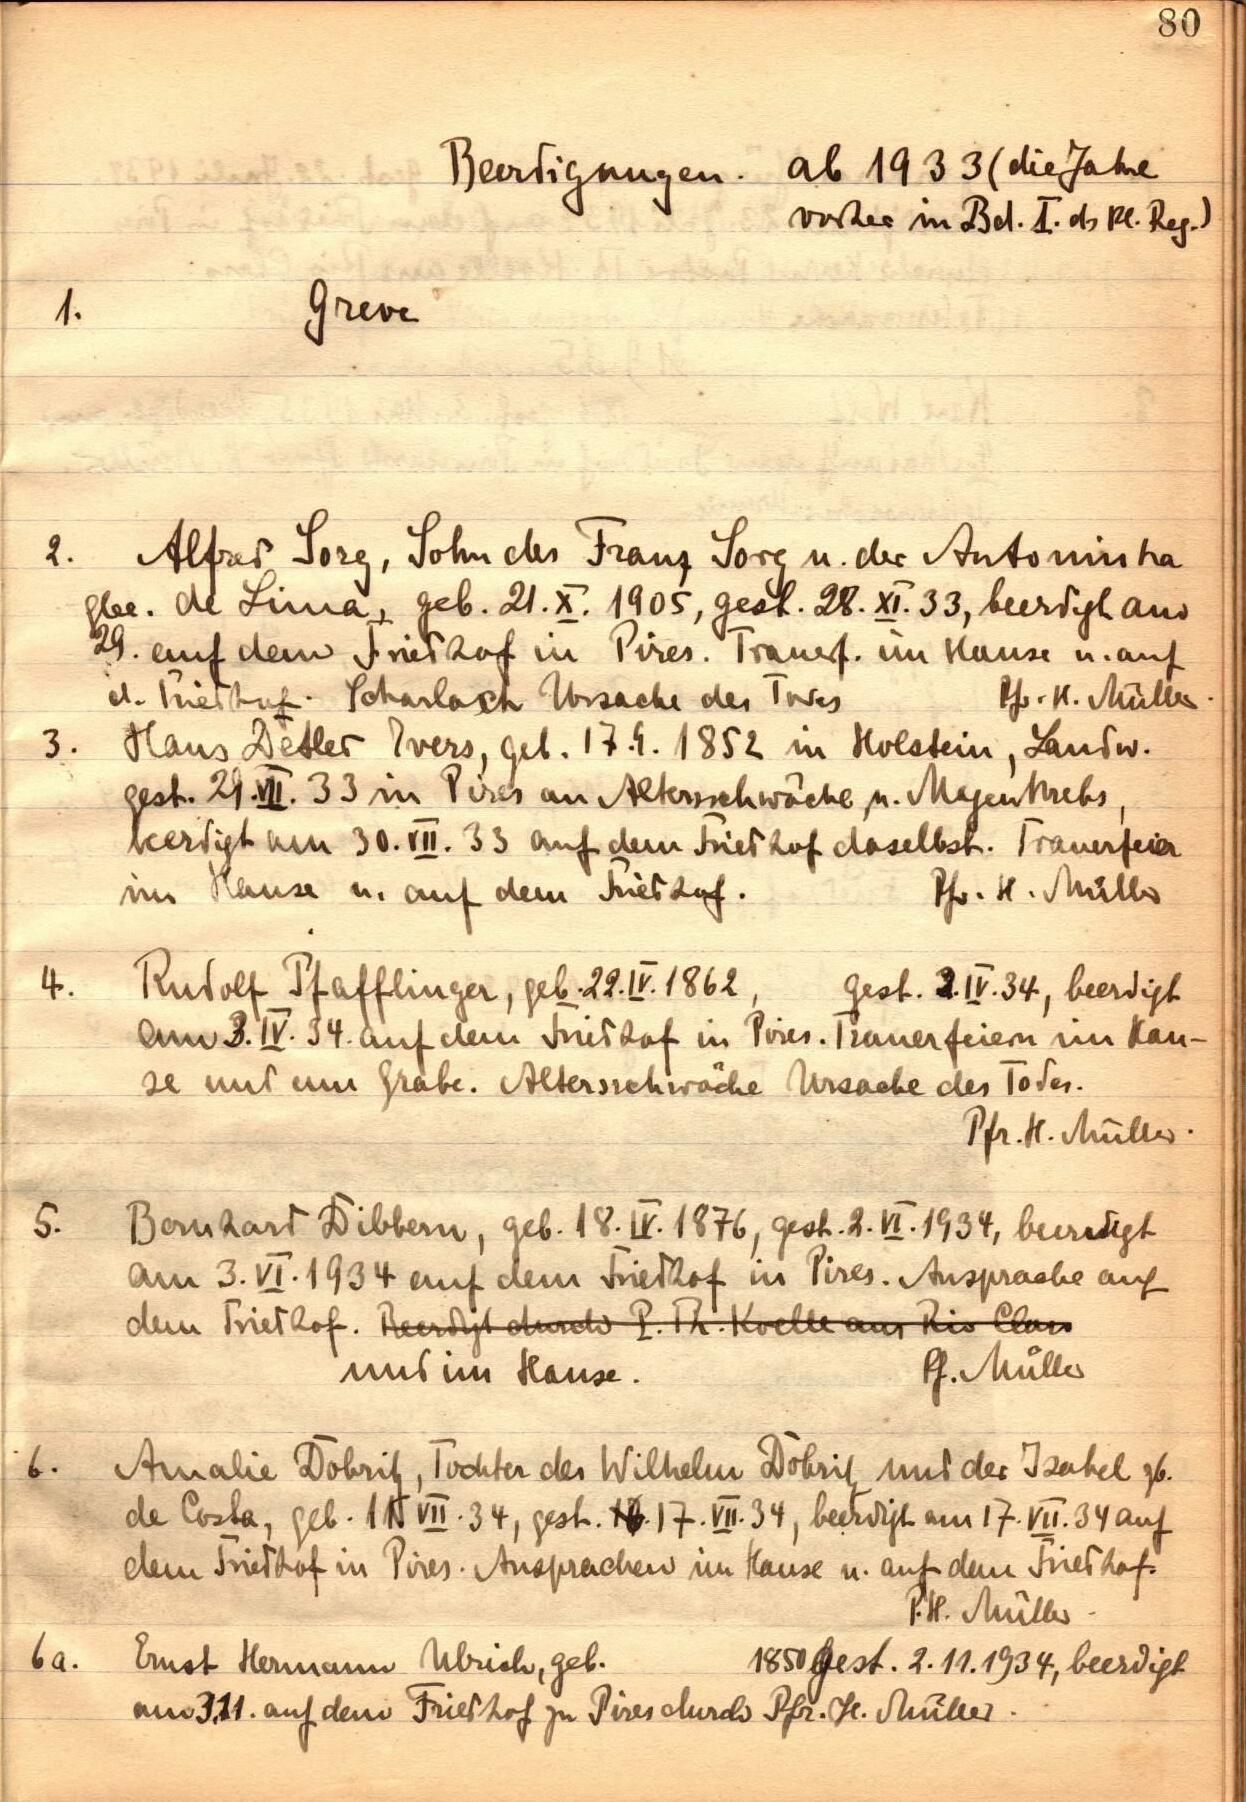 80
Beerdigungen. ab 1933 (die Jahre
vorher in Bd. I. ds Kl. Reg.)
1. Greve
2. Alfred Sorg, Sohn des Franz Sorg u. der Antoninha
gbe. de Lima, geb. 21. X. 1905, gest. 28. XI. 33, beerdigt am
29. auf dem Friedhof in Pires. Trauerf. im Hause u. auf
d. Friedhof. Scharlach Ursache des Todes Pfr. H. Müller.
3. Hans Detlef Evers, geb. 17.4. 1852 in Holstein, Landw.
gest. 29. VII. 33 in Pires an Altersschwäche u. Magenkrebs,
beerdigt am 30. VII. 33 auf dem Friedhof daselbst. Trauerfeier
im Hause u. auf dem Friedhof. Pfr. H. Müller
4. Rudolf Pfafflinger, geb. 22. IV. 1862, gest. 2. IV. 34, beerdigt
am 3. IV. 34. auf dem Friedhof in Pires. Trauerfeiern im Hau-
se und am Grabe. Altersschwäche Ursache des Todes.
Pfr. H. Müller.
5. Bernhard Dibbern, geb. 18. IV. 1876, gest. 2. VI. 1934, beerdigt
am 3. VI. 1934 auf dem Friedhof in Pires. Ansprache auf
dem Friedhof. Beerdigt durch P. Th. Koelle aus Rio Claro
und im Hause. Pf. Müller
6. Amalie Döbritz, Tochter des Wilhelm Döbritz und der Isabel gb.
de Costa, geb. VII. 34, gest. 17. VII. 34, beerdigt am 17. VII. 34 auf
dem Friedhof in Pires. Ansprachen im Hause u. auf dem Friedhof.
P. H. Müller.
6a. Ernst Hermann Ulrich, geb. 1850 gest. 2. 11. 1934, beerdigt
am 3.11. auf dem Friedhof zu Pires durch Pfr. H. Müller.